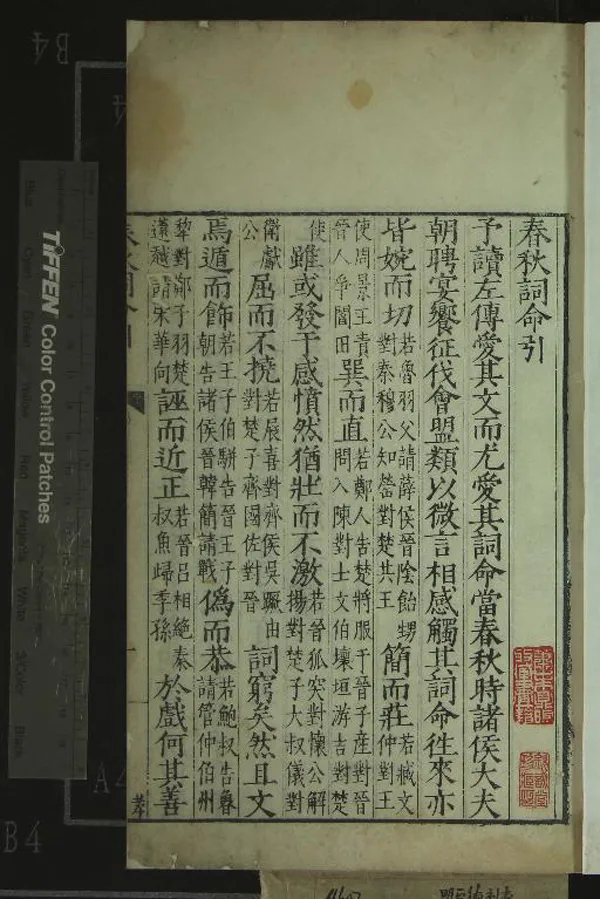 春秋詞命引
予讀左傳愛其文而尤愛其詞命當春秋時諸侯大夫
朝聘宴饗征伐會盟類以微言相感觸其詞命徃來亦
皆婉而切若魯羽父請薛侯晉陰飴甥對秦穆公知罃對楚共王簡而莊若臧文仲對王
使周景王責晉人爭閻田巽而直若鄭人告楚將服于晉子產對晉問入陳對士文伯壞垣游吉對楚
使雖或發于感憤然猶壯而不激若晉狐突對懷公解揚對楚子大叔儀對
衛獻公屈而不撓若展喜對齊侯吳蹶由對楚子齊國佐對晉詞窮矣然且文
焉遁而飾若王子伯駢告晉王子朝告諸侯晉韓簡請戰偽而恭若鮑叔告魯請管仲伯州
犂對鄭子羽楚薳越請宋華向誣而近正若晉呂相絕秦叔魚歸季孫於戲何其善
一
TIFFEN Color Control Patches
B4
A4
B4